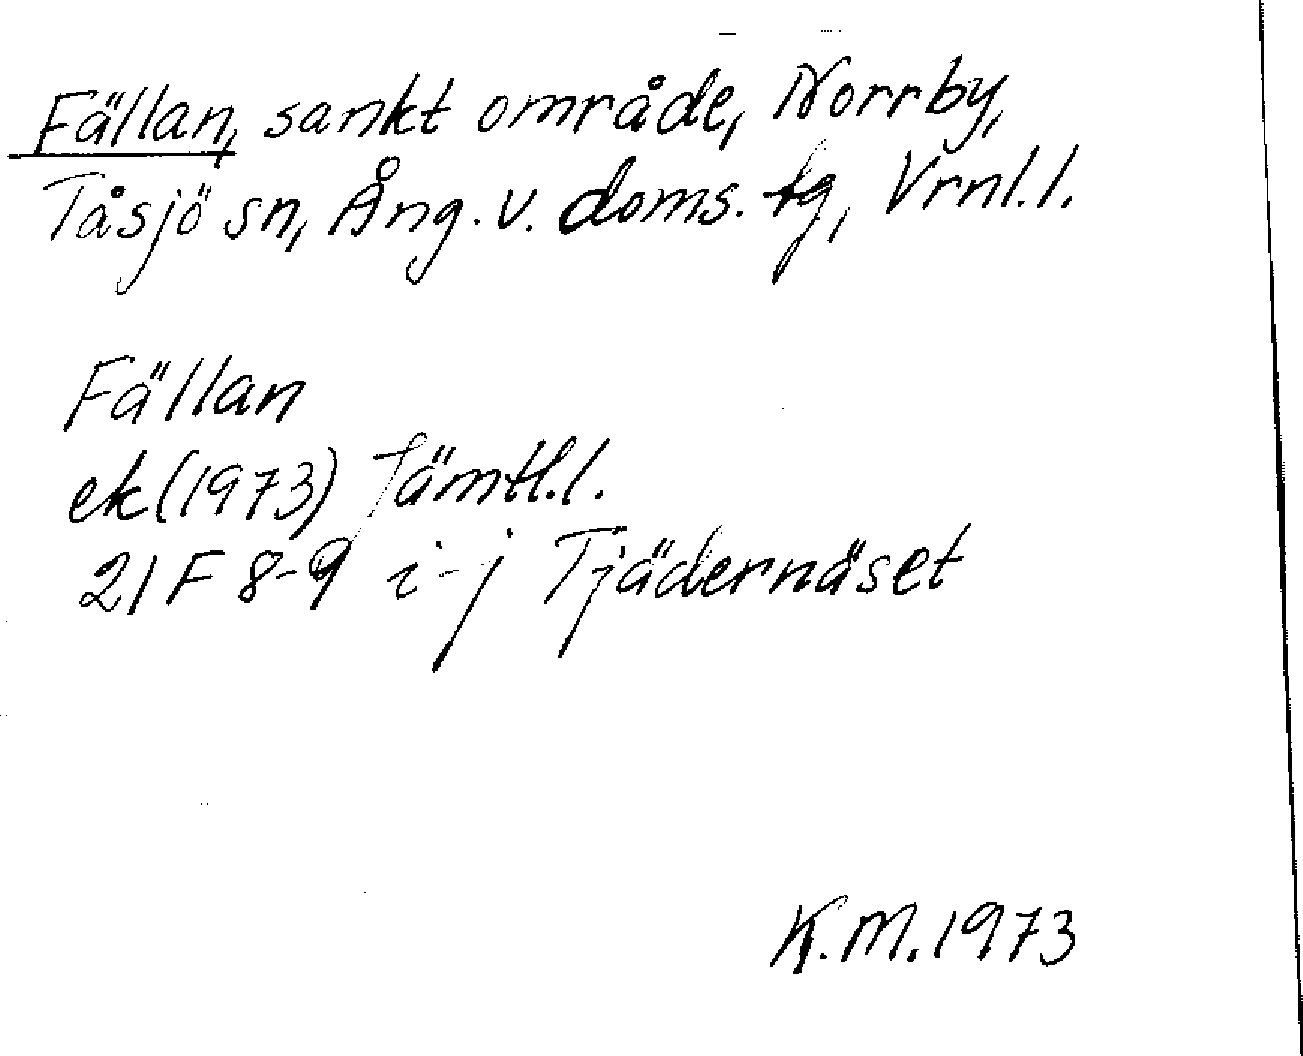 Fällan, sankt område, Norrby,
Tåsjö sn, Ång. v. doms. tg, Vrnl. l.
Fällan
ek (1973) Jämtl. l.
21 F 8-9 i-j Tjädernäset
K. M. 1973